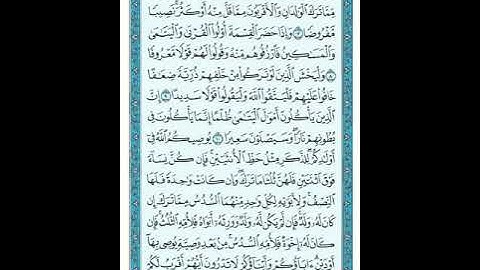 مِّمَّا تَرَكَ الْوَالِدَانِ وَالْأَقْرَبُونَ مِمَّا قَلَّ مِنْهُ أَوْ كَثُرَ ۚ نَصِيبًا
مَّفْرُوضًا ۝٧ وَإِذَا حَضَرَ الْقِسْمَةَ أُولُوا الْقُرْبَىٰ وَالْيَتَامَىٰ
وَالْمَسَاكِينُ فَارْزُقُوهُم مِّنْهُ وَقُولُوا لَهُمْ قَوْلًا مَّعْرُوفًا
۝٨ وَلْيَخْشَ الَّذِينَ لَوْ تَرَكُوا مِنْ خَلْفِهِمْ ذُرِّيَّةً ضِعَافًا
خَافُوا عَلَيْهِمْ فَلْيَتَّقُوا اللَّهَ وَلْيَقُولُوا قَوْلًا سَدِيدًا ۝٩ إِنَّ
الَّذِينَ يَأْكُلُونَ أَمْوَالَ الْيَتَامَىٰ ظُلْمًا إِنَّمَا يَأْكُلُونَ فِي
بُطُونِهِمْ نَارًا ۖ وَسَيَصْلَوْنَ سَعِيرًا ۝١٠ يُوصِيكُمُ اللَّهُ فِي
أَوْلَادِكُمْ ۖ لِلذَّكَرِ مِثْلُ حَظِّ الْأُنثَيَيْنِ ۚ فَإِن كُنَّ نِسَاءً
فَوْقَ اثْنَتَيْنِ فَلَهُنَّ ثُلُثَا مَا تَرَكَ ۖ وَإِن كَانَتْ وَاحِدَةً فَلَهَا
النِّصْفُ ۚ وَلِأَبَوَيْهِ لِكُلِّ وَاحِدٍ مِّنْهُمَا السُّدُسُ مِمَّا تَرَكَ إِن
كَانَ لَهُ وَلَدٌ ۚ فَإِن لَّمْ يَكُن لَّهُ وَلَدٌ وَوَرِثَهُ أَبَوَاهُ فَلِأُمِّهِ الثُّلُثُ ۚ فَإِن
كَانَ لَهُ إِخْوَةٌ فَلِأُمِّهِ السُّدُسُ ۚ مِن بَعْدِ وَصِيَّةٍ يُوصِي بِهَا
أَوْ دَيْنٍ ۗ آبَاؤُكُمْ وَأَبْنَاؤُكُمْ لَا تَدْرُونَ أَيُّهُمْ أَقْرَبُ لَكُمْ